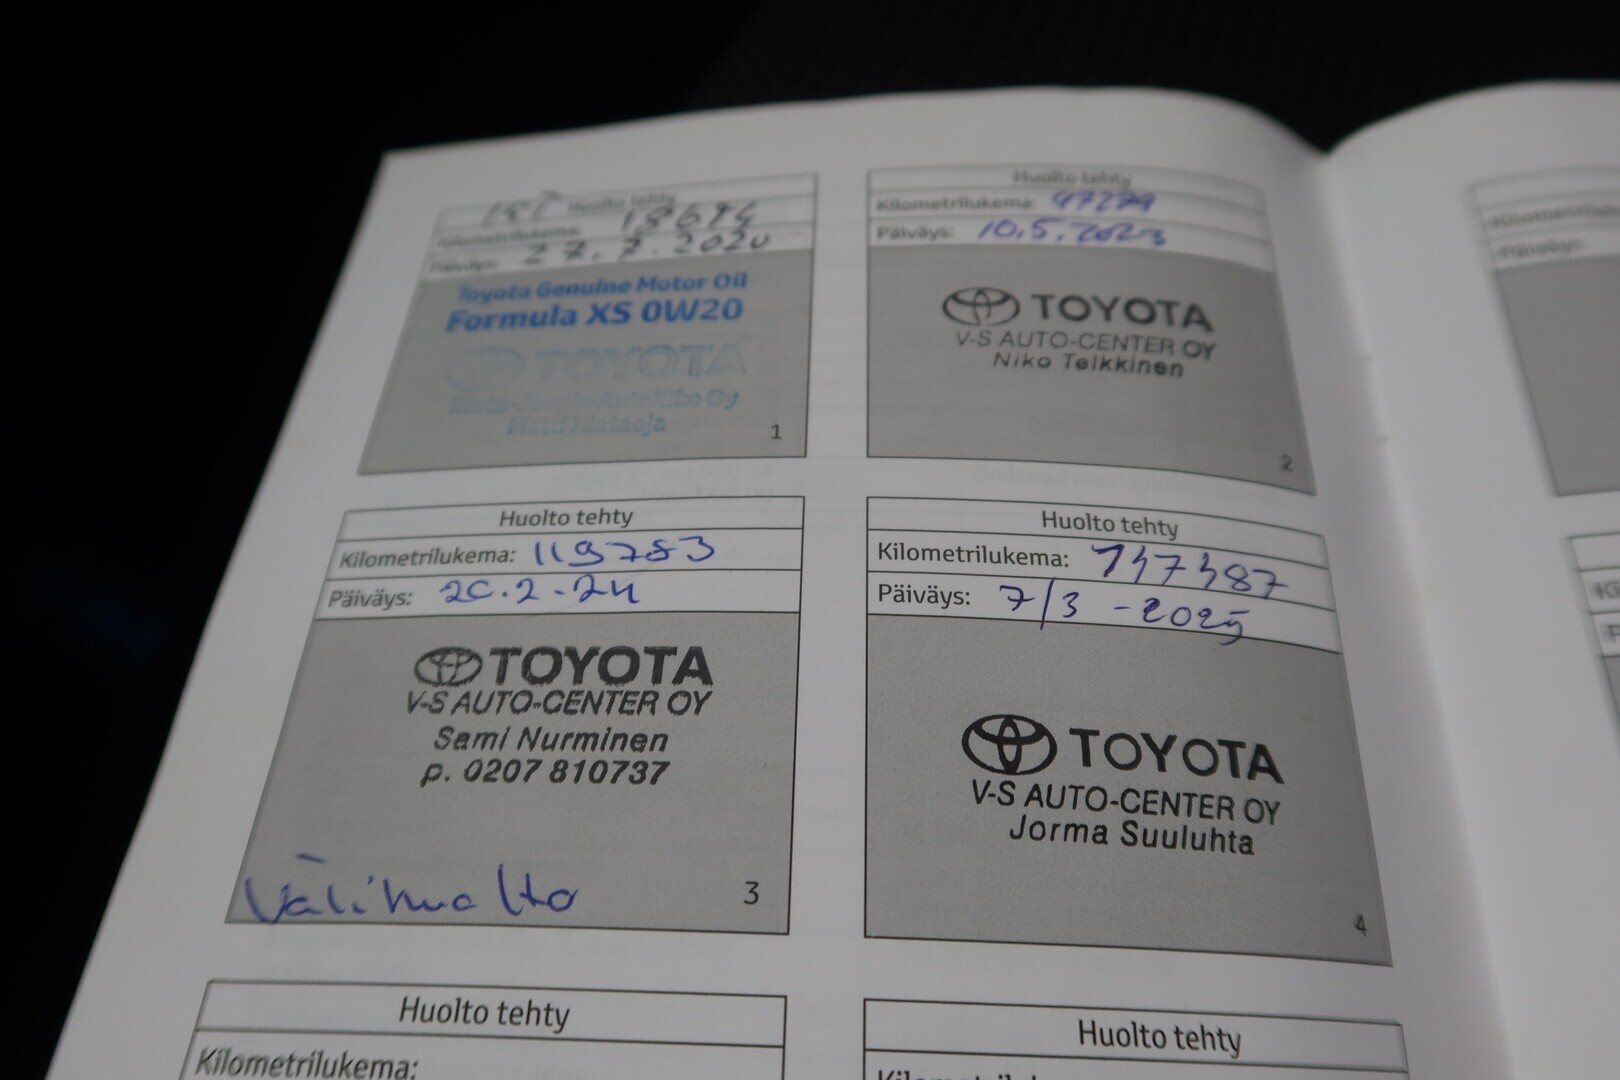 Huolto tehty
Kilometrilukema:
27.7.2020
Päiväys:
Toyota Genuine Motor Oil
Formula XS 0W20
TOYOTA
1
Huolto tehty
Kilometrilukema: 47279
Päiväys: 10.5.2023
TOYOTA
V-S AUTO-CENTER OY
Niko Telkkinen
2
Huolto tehty
Kilometrilukema: 119783
Päiväys: 20.2-24
TOYOTA
V-S AUTO-CENTER OY
Sami Nurminen
p. 0207 810737
Välihuolto
3
Huolto tehty
Kilometrilukema: 147487
Päiväys: 7/3 -2025
TOYOTA
V-S AUTO-CENTER OY
Jorma Suuluhta
4
Huolto tehty
Kilometrilukema:
Huolto tehty